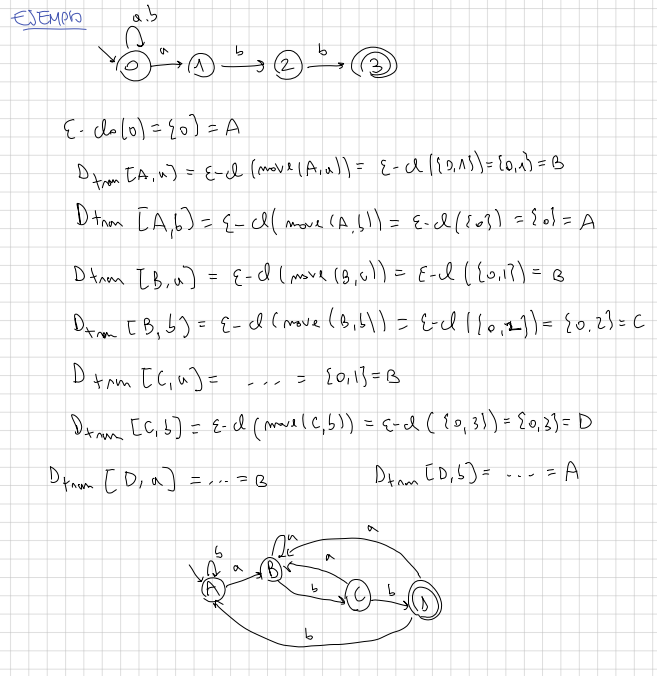 EJEMPLO
a.b
0 a 1 b 2 b 3
ε-clo(0) = {0} = A
Dtran [A,a] = ε-cl (move(A,a)) = ε-cl ({0,1}) = {0,1} = B
Dtran [A,b] = ε-cl (move(A,b)) = ε-cl ({0}) = {0} = A
Dtran [B,a] = ε-cl (move(B,a)) = ε-cl ({0,1}) = B
Dtran [B,b] = ε-cl (move(B,b)) = ε-cl ({0,2}) = {0,2} = C
Dtran [C,a] = .... = {0,1} = B
Dtran [C,b] = ε-cl (move(C,b)) = ε-cl ({0,3}) = {0,3} = D
Dtran [D,a] = .... = B Dtran [D,b] = .... = A
b a a a
A a B b C b D
b